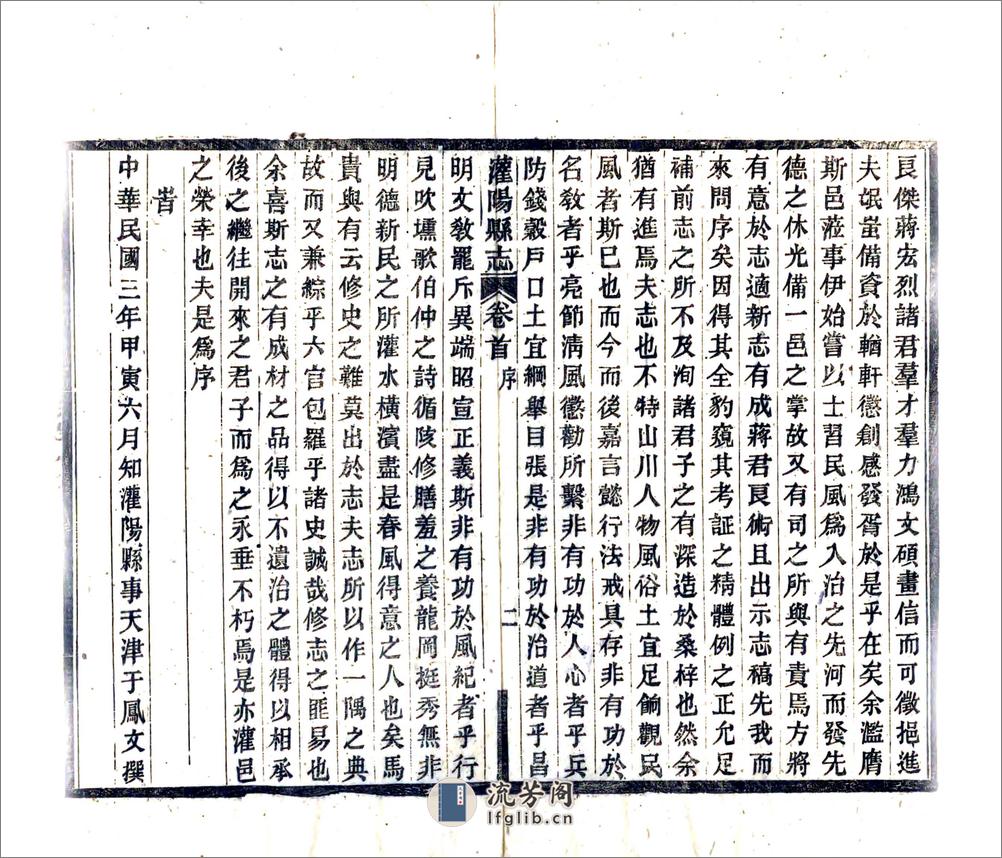 良傑蔣宏烈諸君羣才羣力鴻文碩畫信而可徵挹進
夫氓蚩備資於輶軒懲創感發胥於是乎在矣余濫膺
斯邑蒞事伊始嘗以士習民風爲入治之先河而發先
德之休光備一邑之掌故又有司之所與有責焉方將
有意於志適新志有成蔣君良術且出示志稿先我而
來問序矣因得其全豹窺其考証之精體例之正允足
補前志之所不及洵諸君子之有深造於桑梓也然余
猶有進焉夫志也不特山川人物風俗土宜足餉觀民
風者斯巳也而今而後嘉言懿行法戒具存非有功於
名敎者乎亮節淸風懲勸所繫非有功於人心者乎兵
防錢穀戶口土宜綱舉目張是非有功於治道者乎昌
灌陽縣志 卷首 序 二
明文敎罷斥異端昭宣正義斯非有功於風紀者乎行
見吹壎歌伯仲之詩循陔修膳羞之養龍岡挺秀無非
明德新民之所灌水橫濱盡是春風得意之人也矣馬
貴與有云修史之難莫出於志夫志所以作一隅之典
故而又兼綜乎六官包羅乎諸史誠哉修志之匪易也
余喜斯志之有成材之品得以不遺治之體得以相承
後之繼往開來之君子而爲之永垂不朽焉是亦灌邑
之榮幸也夫是爲序
旹
中華民國三年甲寅六月知灌陽縣事天津于鳳文撰
流芳阁
lfglib.cn